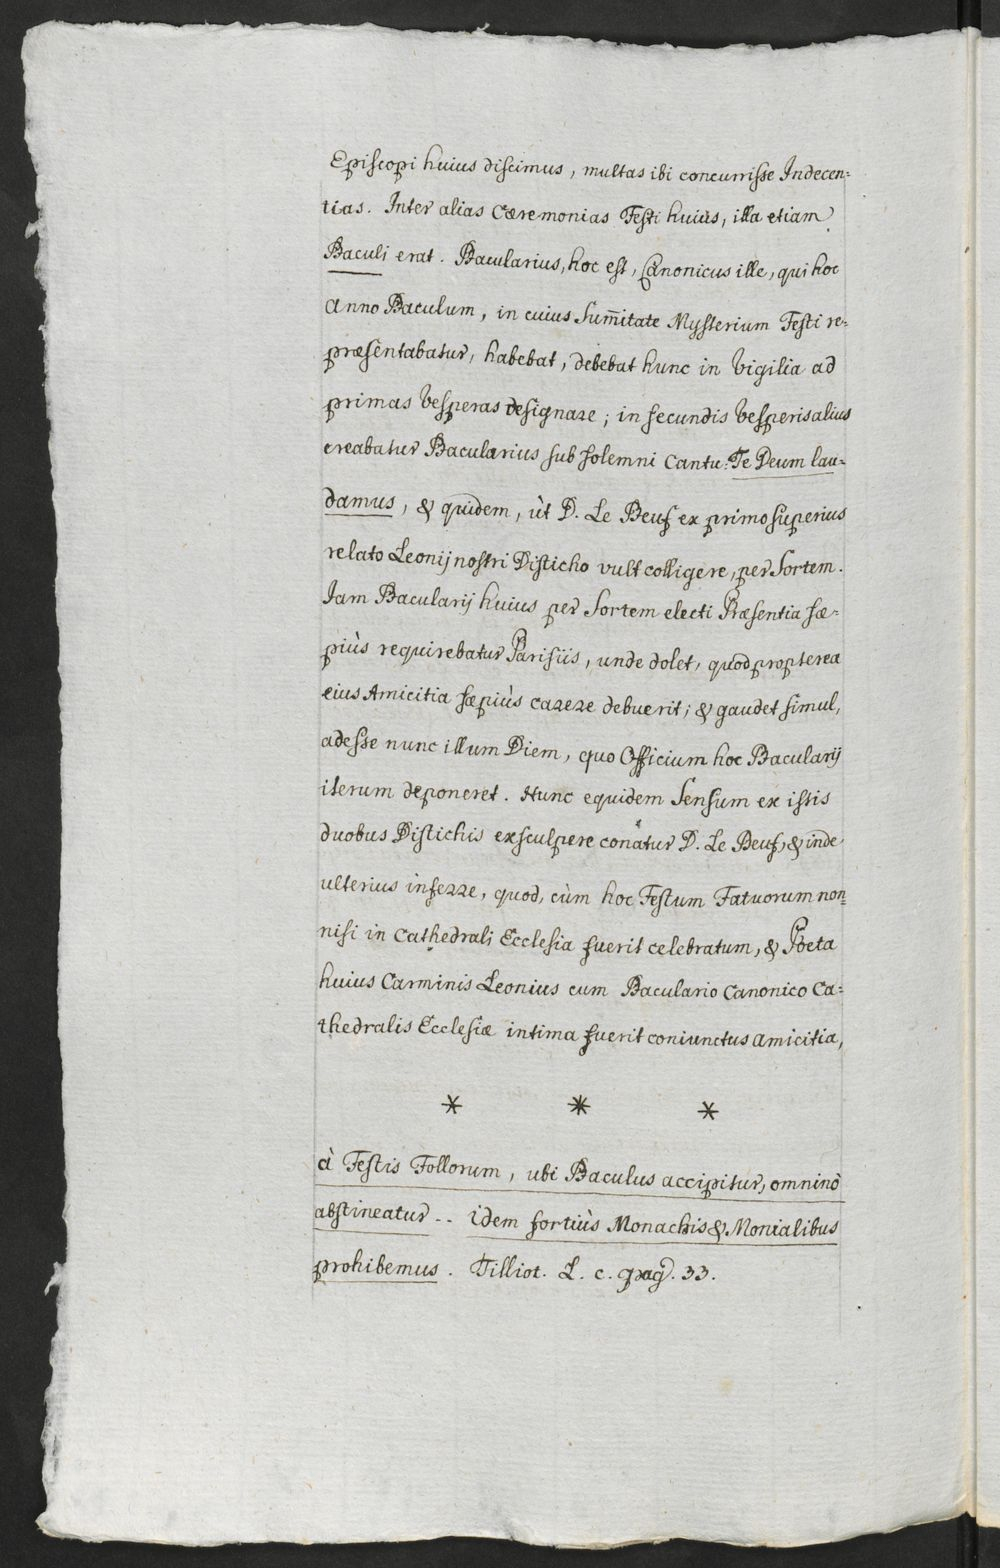 Episcopi huius discimus, multas ibi concurrisse Indecen=
tias. Inter alias Cæremonias Festi huius, illa etiam
Baculi erat. Bacularius, hoc est, Canonicus ille, qui hoc
Anno Baculum, in cuius Sum̄itate Mysterium Festi re=
præsentabatur, habebat, debebat hunc in Vigilia ad
primas Vesperas designare; in secundis Vesperis alius
creabatur Bacularius sub solemni Cantu: Te Deum lau=
damus, & quidem, ùt D. Le Beuf ex primo superius
relato Leonij nostri Disticho vult colligere, per Sortem.
Jam Bacularij huius per Sortem electi Præsentia sæ=
piùs requirebatur Parisiis, unde dolet, quod propterea
eius Amicitia sæpiùs carere debuerit; & gaudet simul,
adesse nunc illum Diem, quo Officium hoc Bacularij
iterum deponeret. Hunc equidem Sensum ex istis
duobus Distichis exsculpere conatur D. Le Beuf, & inde
ulterius inferre, quod, cùm hoc Festum Fatuorum non=
nisi in Cathedrali Ecclesia fuerit celebratum, & Poeta
huius Carminis Leonius cum Baculario Canonico Ca=
thedralis Ecclesiæ intima fuerit coniunctus Amicitia,
* * *
à Festis Follorum, ubi Baculus accipitur, omninò
abstineatur -- idem fortiùs Monachis & Monialibus
prohibemus. Tilliot. L. c. pag. 33.